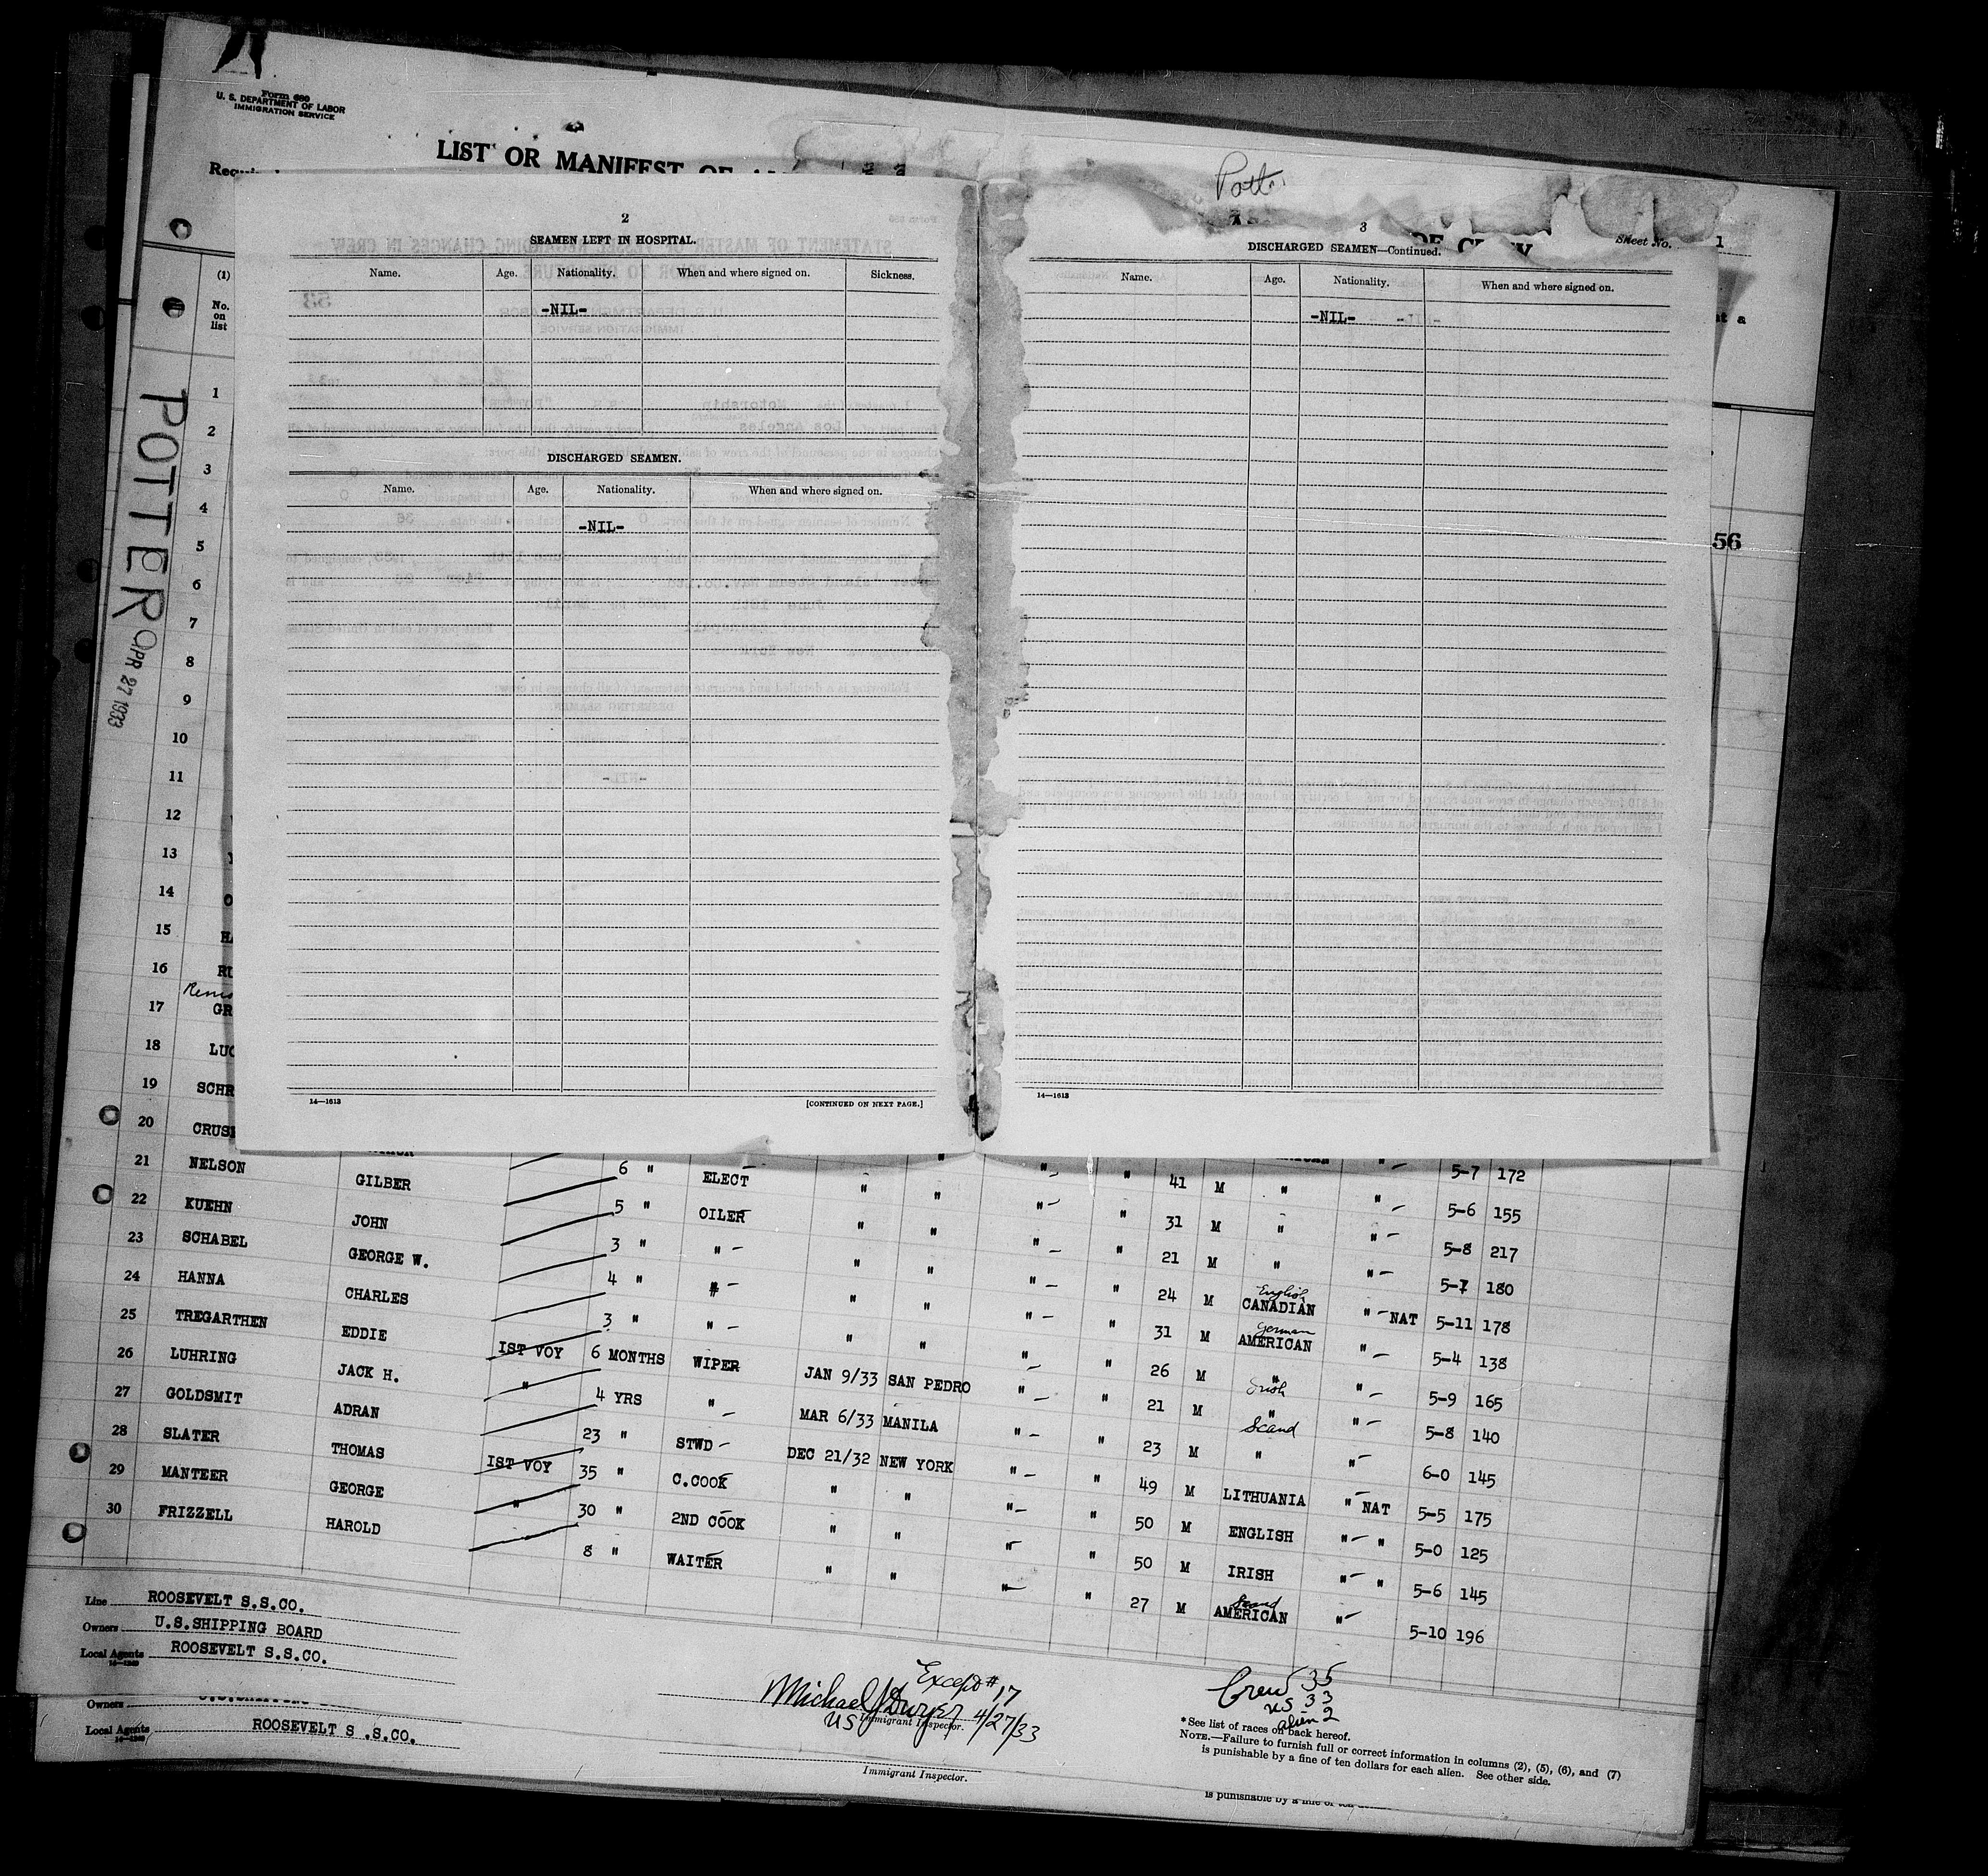 Form 680
U. S. DEPARTMENT OF LABOR
IMMIGRATION SERVICE
LIST OR MANIFEST OF
Sheet No. 1
POTTER
APR 27 1933
(1)
No.
on
list
2
SEAMEN LEFT IN HOSPITAL.
Name. Age. Nationality. When and where signed on. Sickness.
-NIL-
DISCHARGED SEAMEN.
Name. Age. Nationality. When and where signed on.
-NIL-
14—1613 [CONTINUED ON NEXT PAGE.]
3
DISCHARGED SEAMEN—Continued.
Name. Age. Nationality. When and where signed on.
-NIL-
14—1613
at a
56
1
2
3
4
5
6
7
8
9
10
11
12
13
14
15
16
17 GR
18 LUC
19 SCHR
20 CRUS
21 NELSON GILBER 6 " ELECT " " " " 41 M " " 5-7 172
22 KUEHN JOHN 5 " OILER " " " " 31 M " " 5-6 155
23 SCHABEL GEORGE W. 3 " " " " " " 21 M " " 5-8 217
24 HANNA CHARLES 4 " " " " " " 24 M English CANADIAN " NAT 5-7 180
25 TREGARTHEN EDDIE 3 " " " " " " 31 M German AMERICAN " 5-11 178
26 LUHRING JACK H. IST VOY 6 MONTHS WIPER JAN 9/33 SAN PEDRO " " 26 M " " 5-4 138
27 GOLDSMIT ADRAN " 4 YRS " MAR 6/33 MANILA " " 21 M Irish " " 5-9 165
28 SLATER THOMAS 23 " STWD DEC 21/32 NEW YORK " " 23 M Scand " " 5-8 140
29 MANTEER GEORGE IST VOY 35 " C.COOK " " " " 49 M LITHUANIA " NAT 6-0 145
30 FRIZZELL HAROLD " 30 " 2ND COOK " " " " 50 M ENGLISH " " 5-5 175
8 " WAITER " " " " 50 M IRISH " " 5-0 125
27 M Scand AMERICAN " 5-6 145
5-10 196
Line ROOSEVELT S.S.CO.
Owners U.S.SHIPPING BOARD
Local Agents ROOSEVELT S.S.CO.
14—1240
Except #17
Michael J Dwyer 4/27/33
US Immigrant Inspector.
Crew 35
US 33
alien 2
*See list of races on back hereof.
NOTE.—Failure to furnish full or correct information in columns (2), (5), (6), and (7)
is punishable by a fine of ten dollars for each alien. See other side.
Owners
Local Agents ROOSEVELT S .S.CO.
14—1240
Immigrant Inspector.